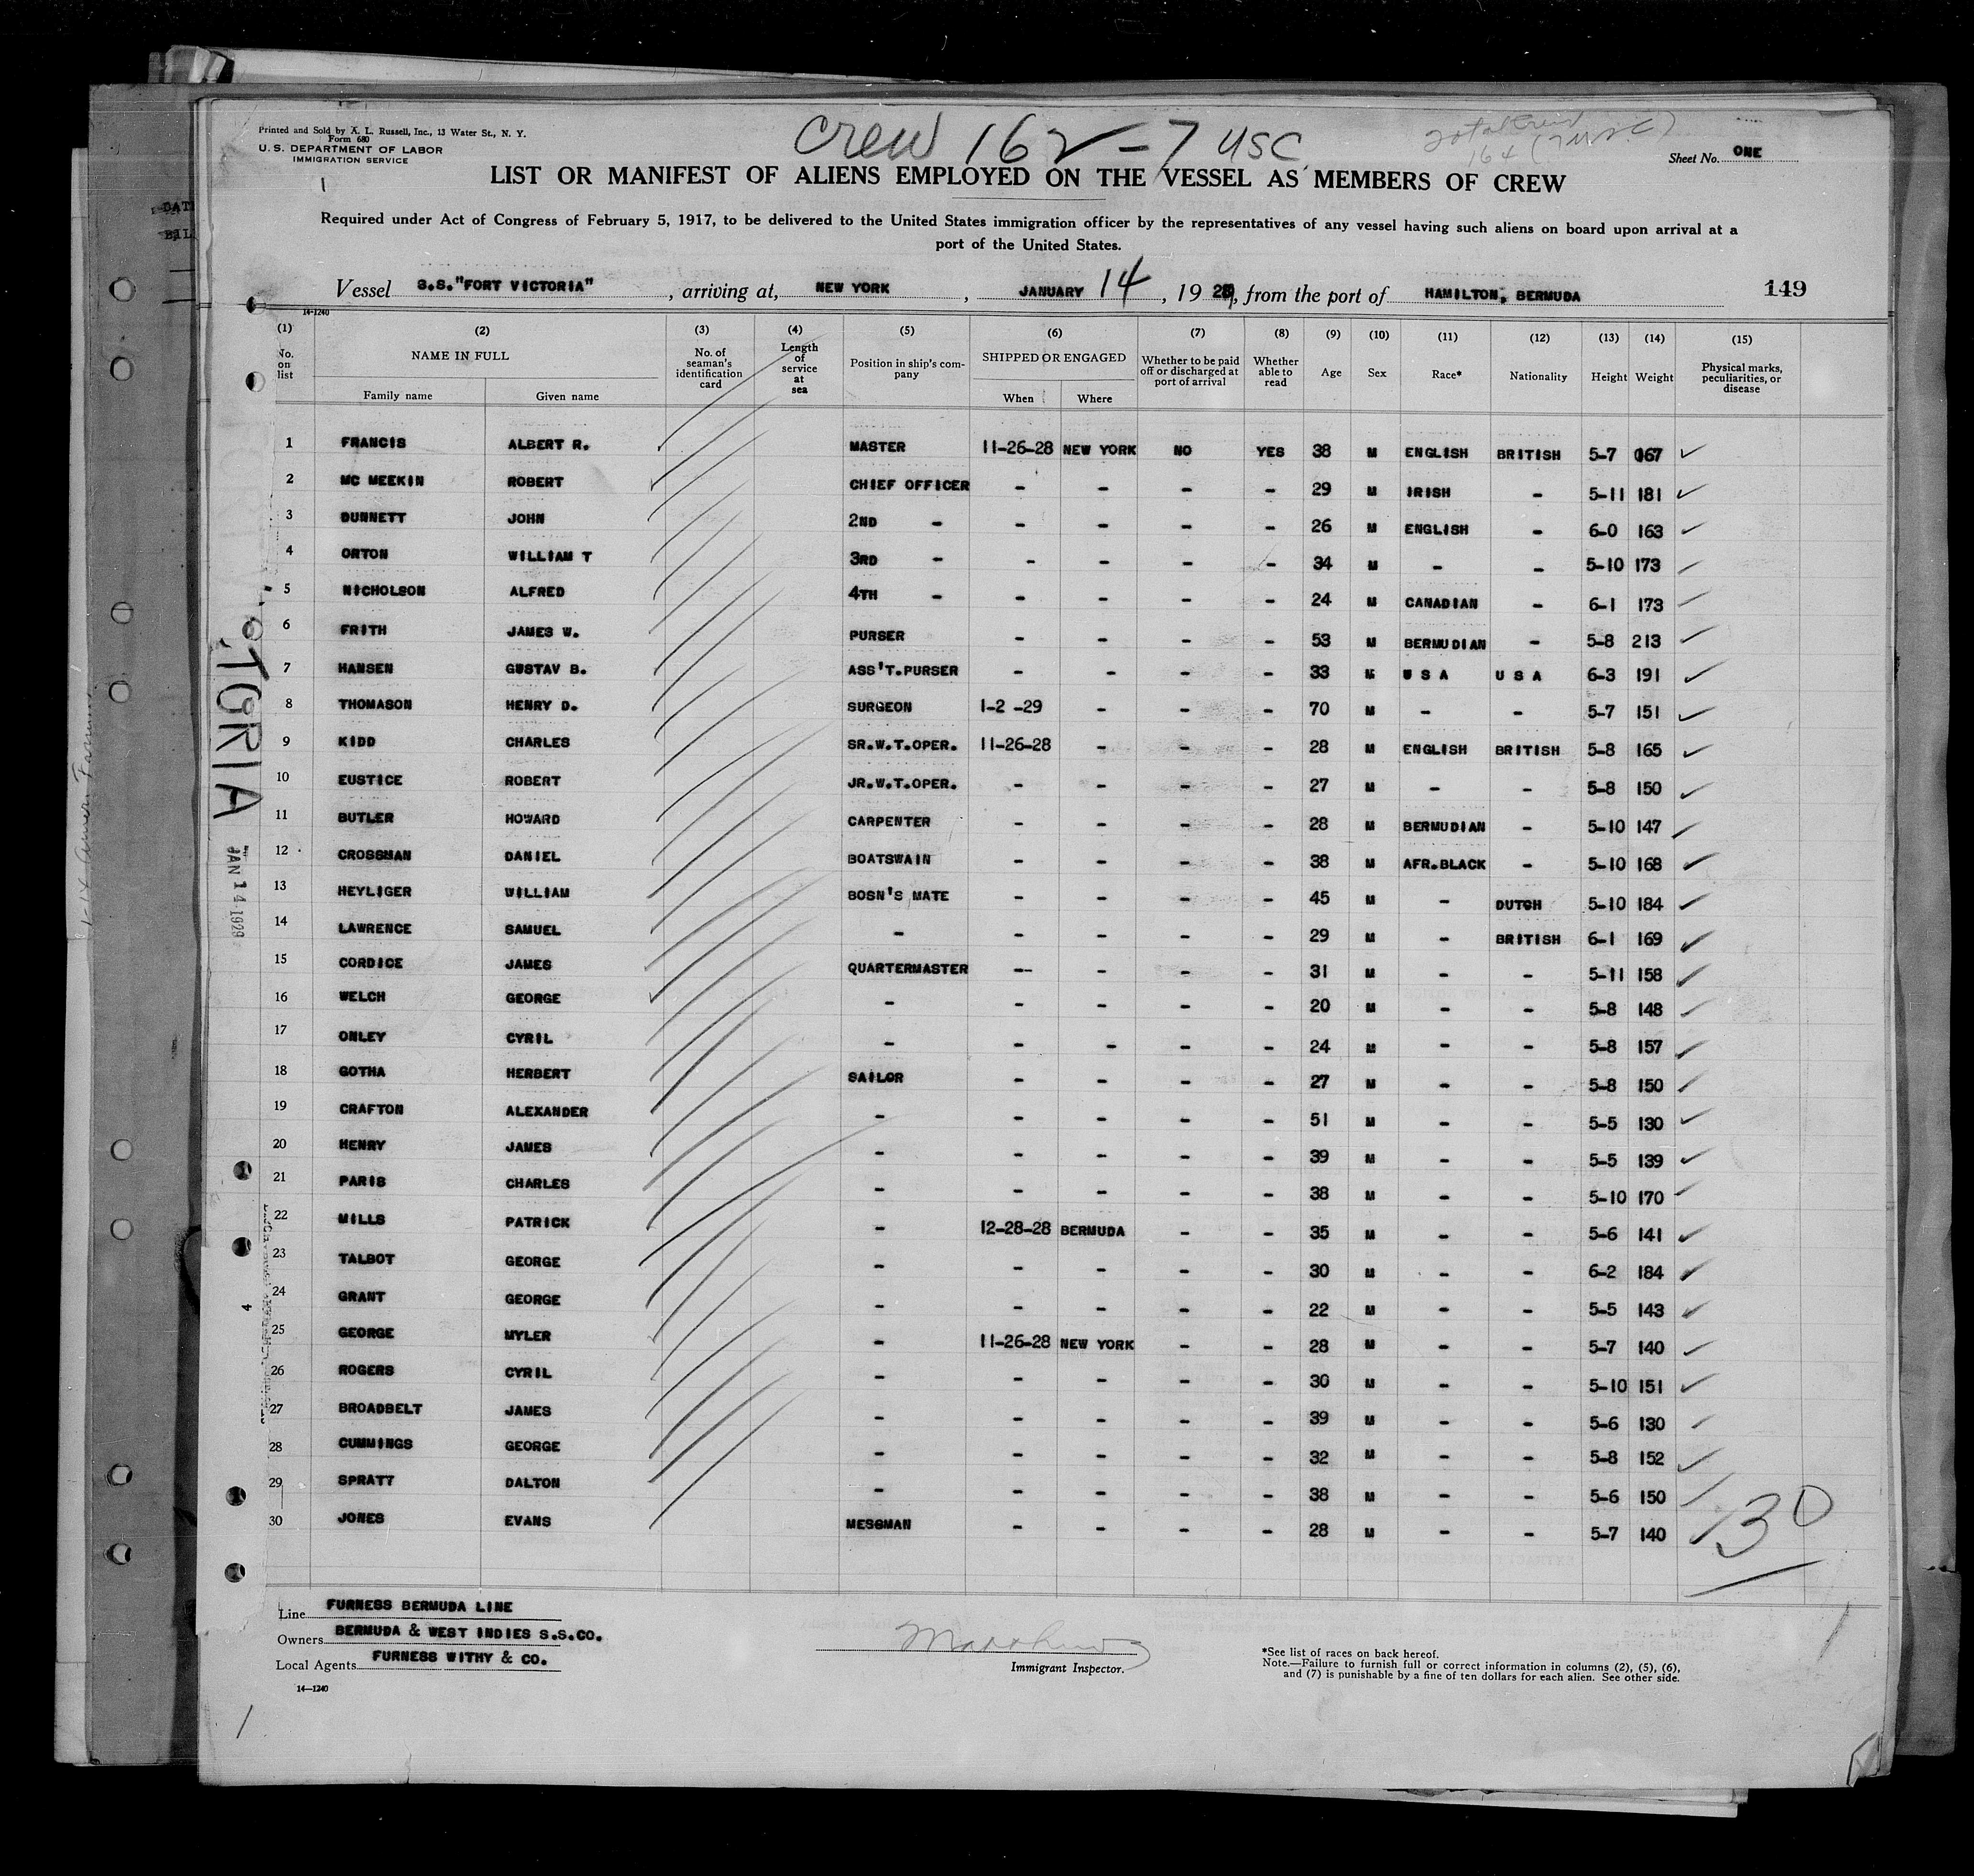 Crew 162 - 7 USC
Total Crew
164 (7 USC)
Printed and Sold by A. L. Russell, Inc., 13 Water St., N. Y.
Form 680
U. S. DEPARTMENT OF LABOR
IMMIGRATION SERVICE
Sheet No. ONE
1
LIST OR MANIFEST OF ALIENS EMPLOYED ON THE VESSEL AS MEMBERS OF CREW
Required under Act of Congress of February 5, 1917, to be delivered to the United States immigration officer by the representatives of any vessel having such aliens on board upon arrival at a
port of the United States.
Vessel S.S."FORT VICTORIA", arriving at, NEW YORK, JANUARY 14, 1929, from the port of HAMILTON, BERMUDA 149
14-1240
(1) (2) (3) (4) (5) (6) (7) (8) (9) (10) (11) (12) (13) (14) (15)
No. on list NAME IN FULL Family name Given name No. of seaman's identification card Length of service at sea Position in ship's company SHIPPED OR ENGAGED When Where Whether to be paid off or discharged at port of arrival Whether able to read Age Sex Race* Nationality Height Weight Physical marks, peculiarities, or disease
1 FRANCIS ALBERT R. MASTER 11-26-28 NEW YORK NO YES 38 M ENGLISH BRITISH 5-7 167 ✓
2 MC MEEKIN ROBERT CHIEF OFFICER - - - - 29 M IRISH - 5-11 181 ✓
3 DUNNETT JOHN 2ND - - - - - 26 M ENGLISH - 6-0 163 ✓
4 ORTON WILLIAM T 3RD - - - - - 34 M - - 5-10 173 ✓
5 NICHOLSON ALFRED 4TH - - - - - 24 M CANADIAN - 6-1 173 ✓
6 FRITH JAMES W. PURSER - - - - 53 M BERMUDIAN - 5-8 213 ✓
7 HANSEN GUSTAV B. ASS'T.PURSER - - - - 33 M U S A U S A 6-3 191 ✓
8 THOMASON HENRY D. SURGEON 1-2 -29 - - - 70 M - - 5-7 151 ✓
9 KIDD CHARLES SR.W.T.OPER. 11-26-28 - - - 28 M ENGLISH BRITISH 5-8 165 ✓
10 EUSTICE ROBERT JR.W.T.OPER. - - - - 27 M - - 5-8 150 ✓
11 BUTLER HOWARD CARPENTER - - - - 28 M BERMUDIAN - 5-10 147 ✓
12 CROSSMAN DANIEL BOATSWAIN - - - - 38 M AFR.BLACK - 5-10 168 ✓
13 HEYLIGER WILLIAM BOSN'S MATE - - - - 45 M - DUTCH 5-10 184 ✓
14 LAWRENCE SAMUEL - - - - - 29 M - BRITISH 6-1 169 ✓
15 CORDICE JAMES QUARTERMASTER -- - - - 31 M - - 5-11 158 ✓
16 WELCH GEORGE - - - - - 20 M - - 5-8 148 ✓
17 ONLEY CYRIL - - - - - 24 M - - 5-8 157 ✓
18 GOTHA HERBERT SAILOR - - - - 27 M - - 5-8 150 ✓
19 CRAFTON ALEXANDER - - - - - 51 M - - 5-5 130 ✓
20 HENRY JAMES - - - - - 39 M - - 5-5 139 ✓
21 PARIS CHARLES - - - - - 38 M - - 5-10 170 ✓
22 MILLS PATRICK - 12-28-28 BERMUDA - - 35 M - - 5-6 141 ✓
23 TALBOT GEORGE - - - - - 30 M - - 6-2 184 ✓
24 GRANT GEORGE - - - - - 22 M - - 5-5 143 ✓
25 GEORGE MYLER - 11-26-28 NEW YORK - - 28 M - - 5-7 140 ✓
26 ROGERS CYRIL - - - - - 30 M - - 5-10 151 ✓
27 BROADBELT JAMES - - - - - 39 M - - 5-6 130 ✓
28 CUMMINGS GEORGE - - - - - 32 M - - 5-8 152 ✓
29 SPRATT DALTON - - - - - 38 M - - 5-6 150 ✓
30 JONES EVANS MESSMAN - - - - 28 M - - 5-7 140 ✓
30
Line FURNESS BERMUDA LINE
Owners BERMUDA & WEST INDIES S.S.CO.
Local Agents FURNESS WITHY & CO.
14—1240
Immigrant Inspector.
*See list of races on back hereof.
Note.—Failure to furnish full or correct information in columns (2), (5), (6),
and (7) is punishable by a fine of ten dollars for each alien. See other side.
JAN 14 1929
4